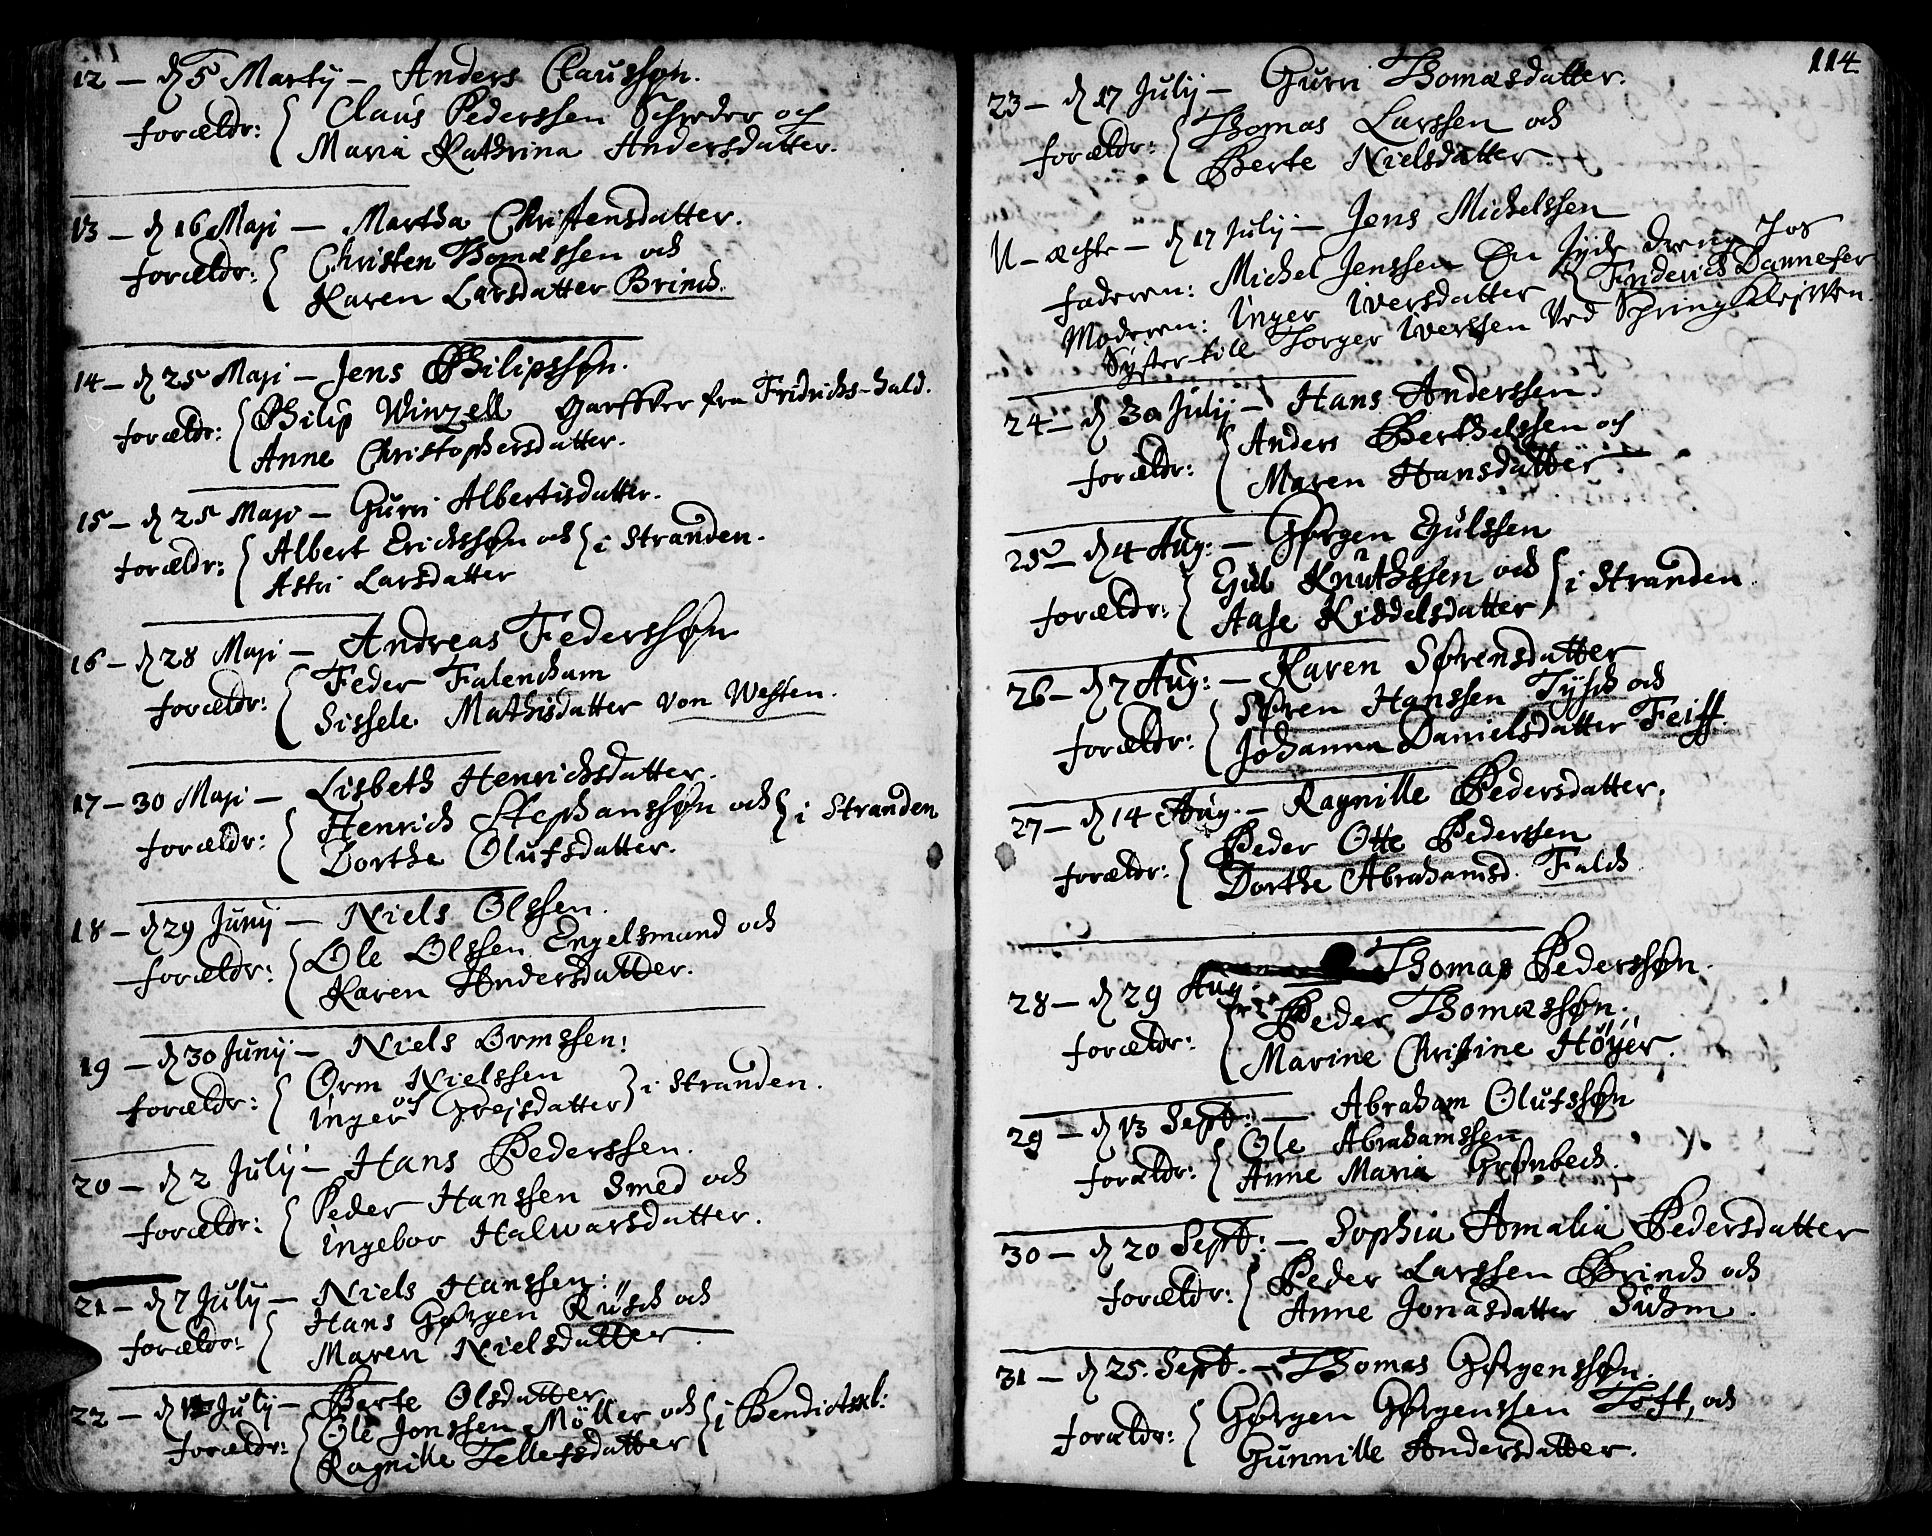 12 — d 5 Martij — Anders Clausson.
forældr: { Claus Pederssen Schreder och
Maria Kathrina Andersdatter.
13 — d 16 Maji — Martha Christensdatter.
forældr: { Christen Thomæssen och
Karen Larsdatter Brinch.
14 — d 25 Maji — Jens Philipssøn.
forældr: { Philip Winzell Garffver fra Fridrichs-hald.
Anne Christophersdatter.
15 — d 25 Maji — Gurri Albertisdatter.
forældr: { Albert Erichssøn och } i Stranden.
Astri Larsdatter
16 — d 28 Maji — Andreas Federssøn
forældr: { Feder Falencham
Sissele Mathisdatter von Westen.
17 — 30 Maji — Lisbeth Henrichsdatter.
forældr: { Henrich Stephanssøn och } i Stranden
Dorthe Olufsdatter.
18 — d 29 Junij — Niels Olssen.
forældr: { Ole Olssen Engelsmand och
Karen Andersdatter.
19 — d 30 Junij — Niels Ormssen:
forældr: { Orm Nielssen
Inger Grejsdatter } i Stranden.
20 — d 2 Julij — Hans Pederssen.
forældr: { Peder Hanssen Smed och
Ingebor Halwarsdatter.
21 — d 7 July — Niels Hanssen:
forældr: { Hans Gørgen Rusch och
Maren Nielsdatter.
22 — d Julij — Berte Olsdatter
forældr: { Ole Jonssen Möller och } i Bendictxel:
Ragnille Tellefsdatter
114
23 — d 17 Julij — Gurri Thomæsdatter.
forældr: { Thomas Larssen och
Berte Nielsdatter.
U-ægte — d 17 Julij — Jens Michelssen
faderen: Michel Jenssen En Jyde dreng hos
Moderen: Inger Iversdatter { Friderich Dannefer
Syster till Torger Iverssen Ved Spring Klejwen.
24 — d 30 Julij — Hans Anderssen.
forældr: { Anders Berthelssen och
Maren Hansdatter.
25 — d 4 Aug: — Gørgen Egulssen
forældr: { Egul Knuthssen och } i Stranden
Aase Kiddelsdatter
26 — d 7 Aug: — Karen Sørensdatter
forældr: { Søren Hanssen Tysch och
Johanna Danielsdatter Feiff.
27 — d 14 Aug. — Ragnille Pedersdatter.
forældr: { Peder Otte Pederssen
Dorthe Abrahamsd. Falch
28 — d 29 Aug. Thomas Pederssøn.
forældr: { Peder Thomæssøn.
Marine Christine Höyer.
29 — d 13 Sept: — Abraham Olufssøn
forældr: { Ole Abrahamssen
Anne Maria Grønbech.
30 — d 20 Sept: — Sophia Amalia Pedersdatter
forældr: { Peder Larssen Brinch och
Anne Jonasdatter Suhm.
31 — d 25. Sept. — Thomas Gørgenssøn.
forældr: { Gørgen Gørgenssen Toft, och
Gunnille Andersdatter.